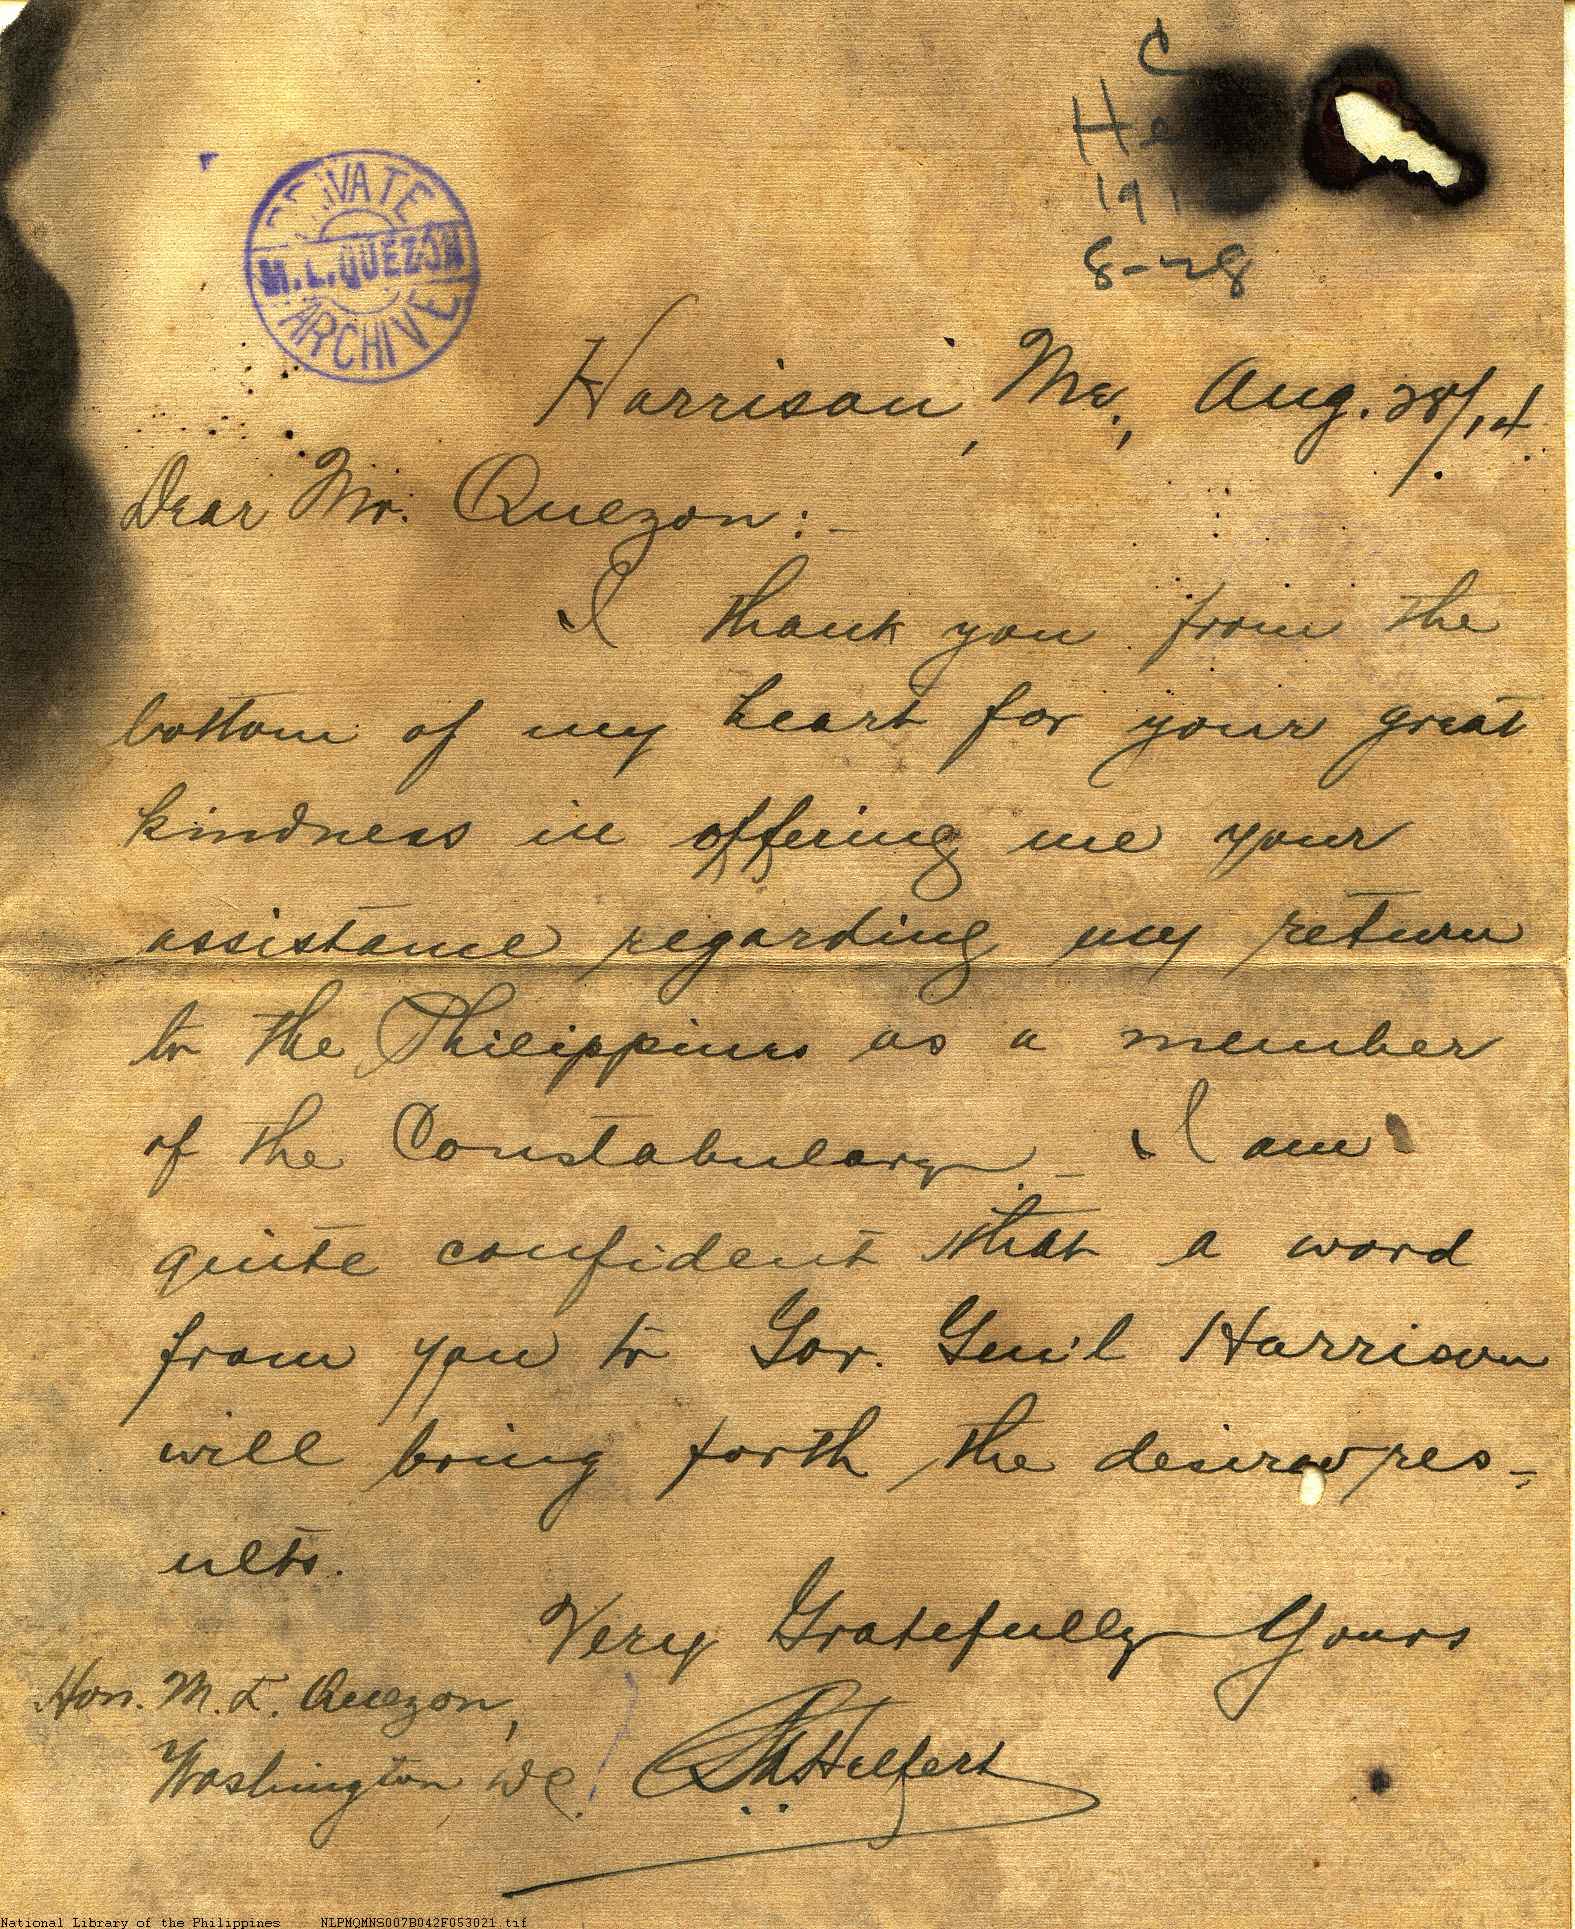 C
He
191
8-28
PRIVATE
M.L.QUEZON
ARCHIVE
Harrison, Me., Aug. 28/14
Dear Mr. Quezon:-
I thank you from the
bottom of my heart for your great
kindness in offering me your
assistance regarding my return
to the Philippines as a member
of the Constabulary._ I am
quite confident that a word
from you to Gov. Gen'l Harrison
will bring forth the desired res-
ults.
Very Gratefully Yours
Hon. M. L. Quezon,
Washington, DC.
Helfert
National Library of the Philippines NLPMQMNS007B042F053021.tif